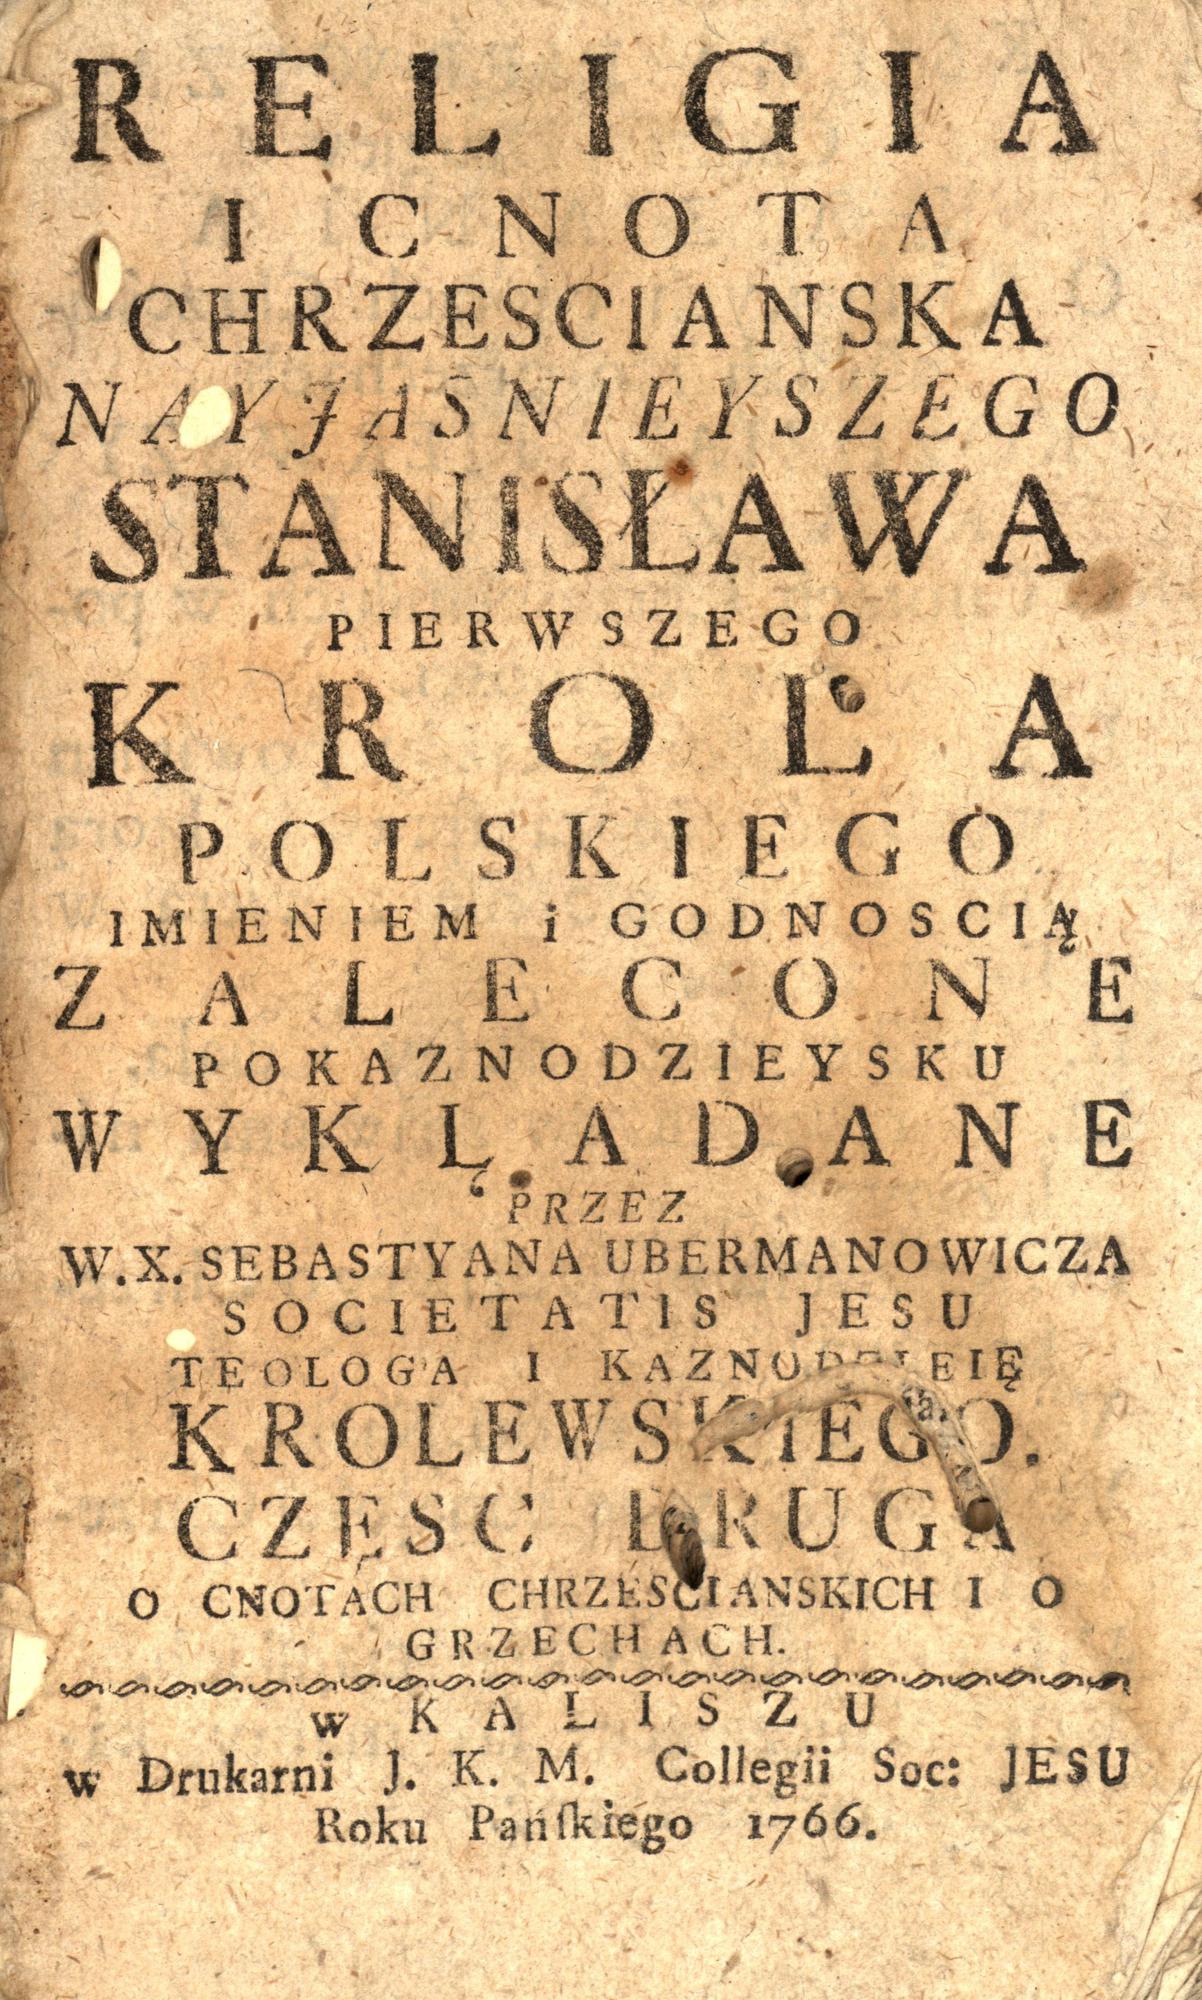 RELIGIA
I CNOTA
CHRZESCIANSKA
NAYJASNIEYSZEGO
STANISŁAWA
PIERWSZEGO
KROLA
POLSKIEGO
IMIENIEM i GODNOSCIĄ
ZALECONE
POKAZNODZIEYSKU
WYKLĄDANE
PRZEZ
W.X. SEBASTYANA UBERMANOWICZA
SOCIETATIS JESU
TEOLOGA I KAZNODZIEIĘ
KROLEWSKIEGO.
CZĘSC DRUGA
O CNOTACH CHRZESCIANSKICH I O
GRZECHACH.
w KALISZU
w Drukarni J. K. M. Collegii Soc: JESU
Roku Pańſkiego 1766.